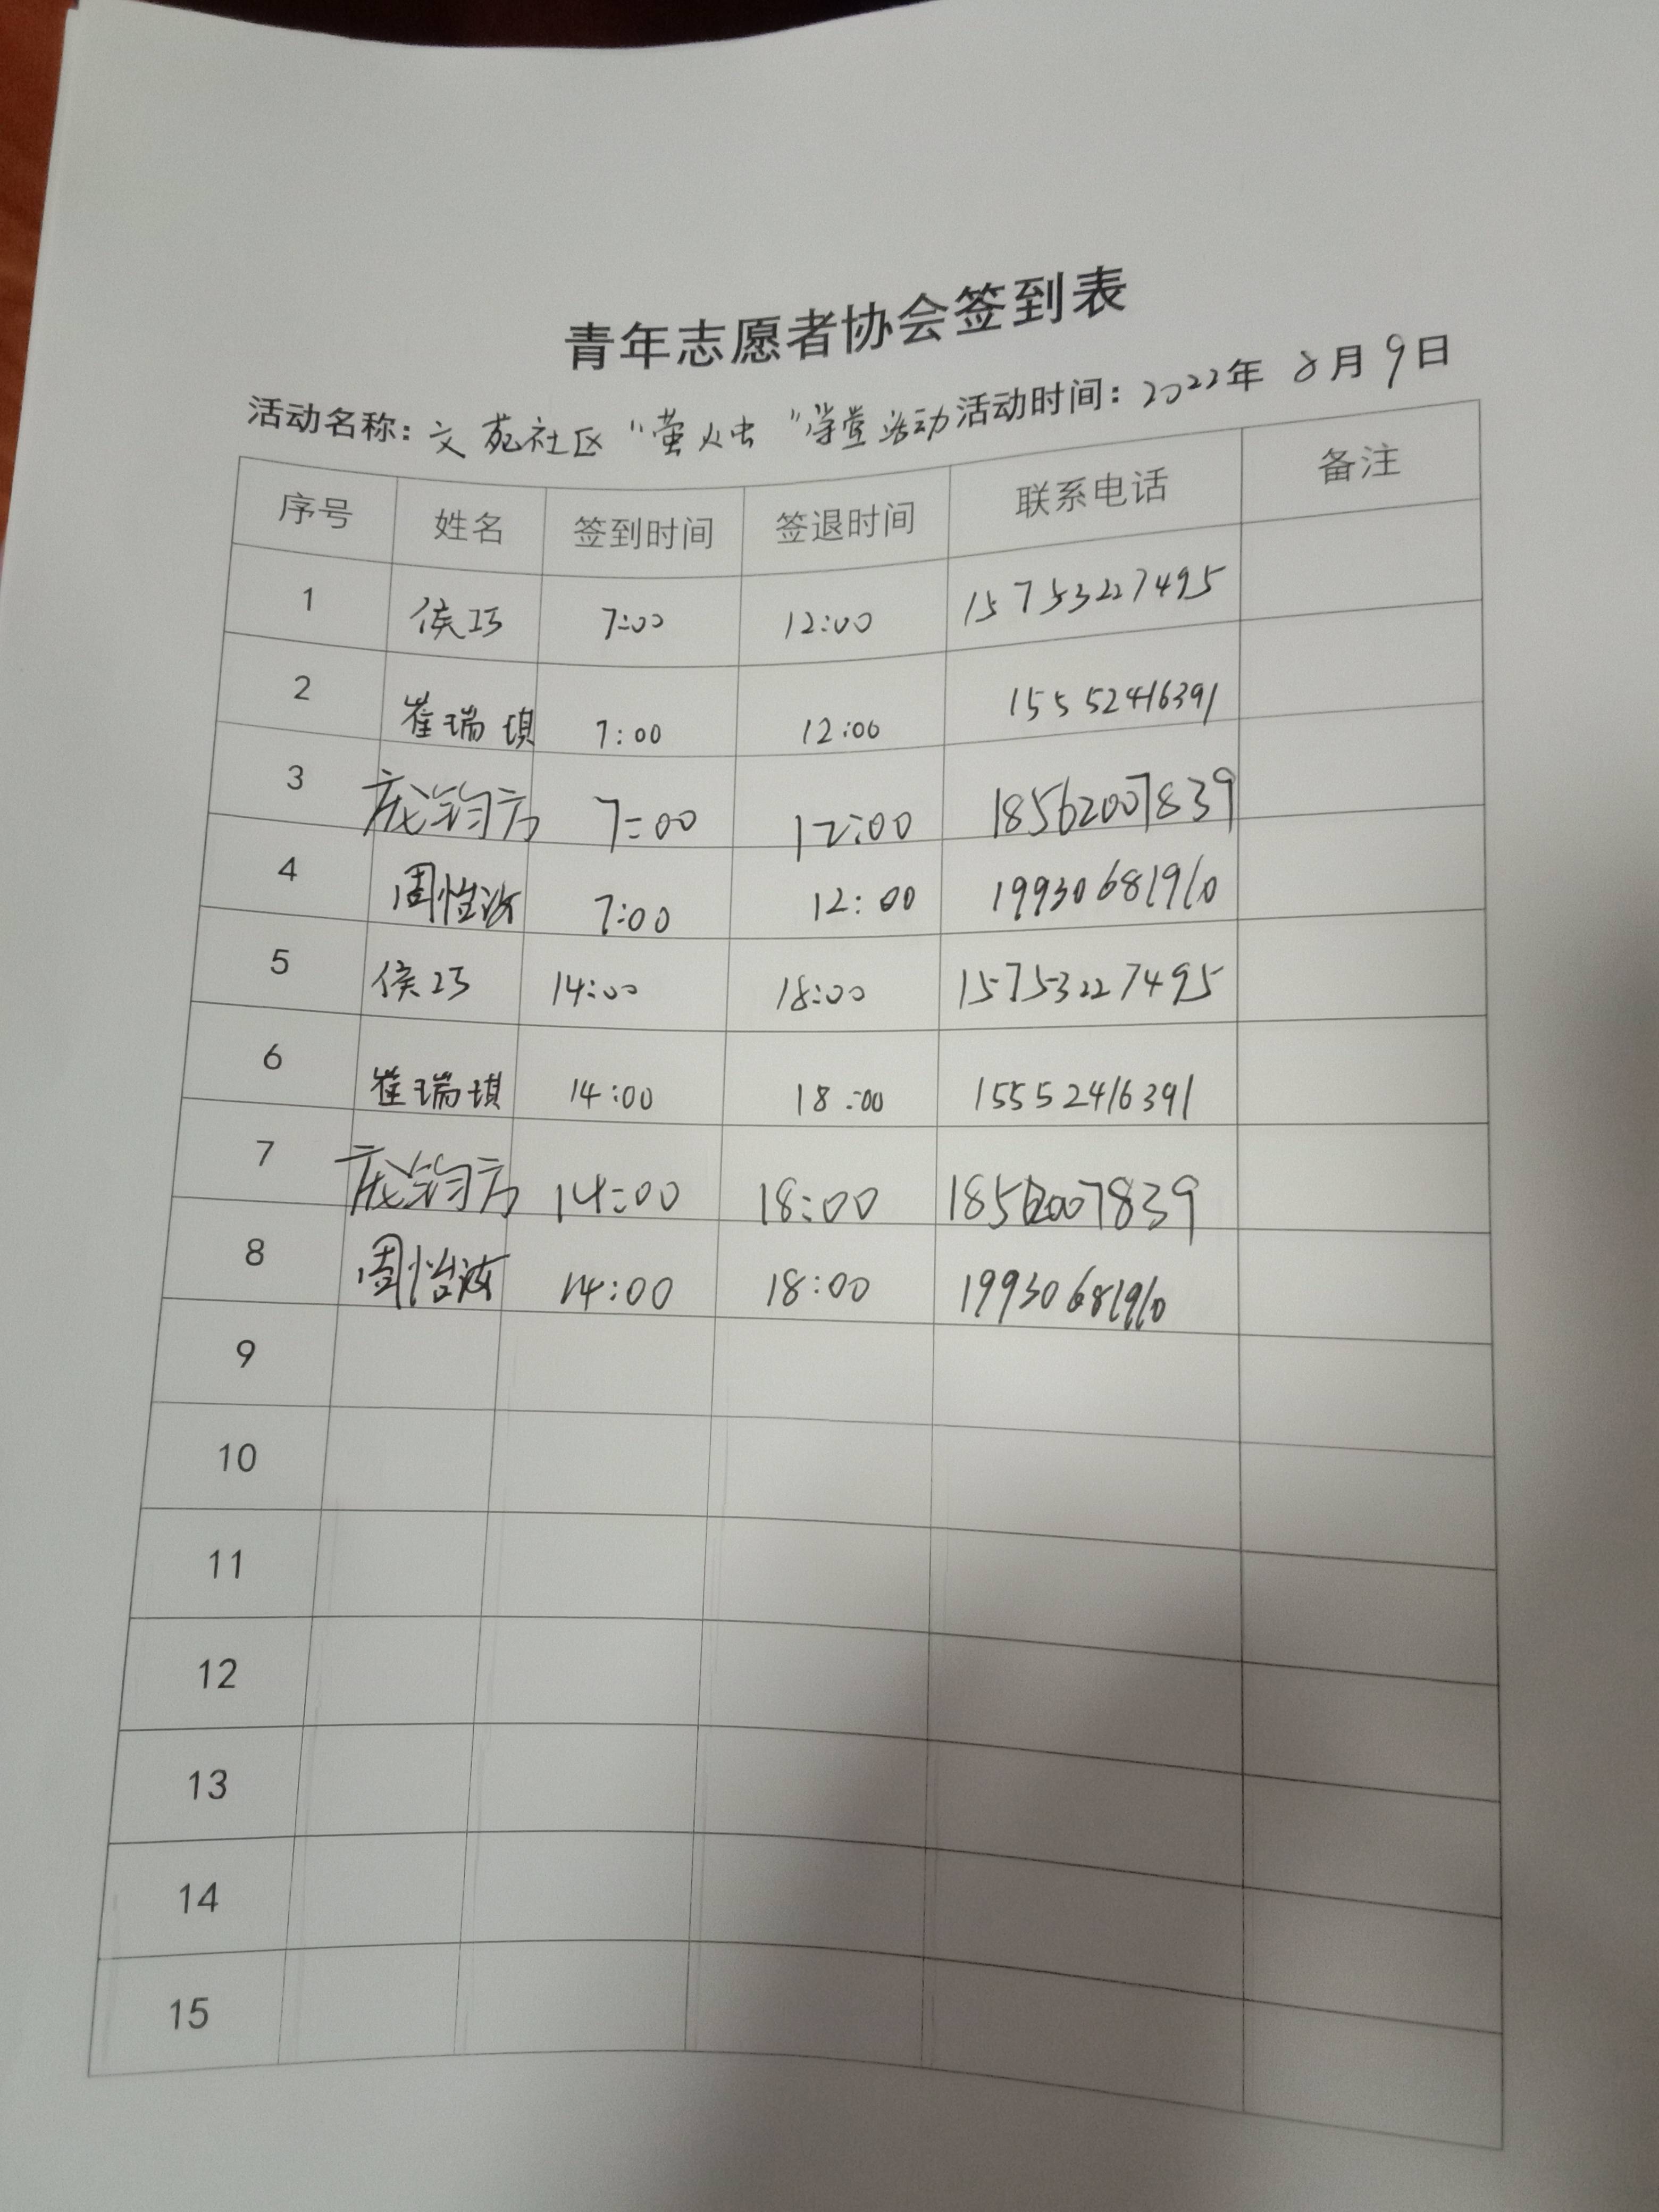 青年志愿者协会签到表
活动名称: 文苑社区"萤火虫"学堂活动 活动时间: 2022年 8月 9日
序号 姓名 签到时间 签退时间 联系电话 备注
1 侯巧 7:00 12:00 15753227495
2 崔瑞琪 7:00 12:00 15552416391
3 庞钧方 7:00 12:00 18562007839
4 周怡波 7:00 12:00 19930681910
5 侯巧 14:00 18:00 15753227495
6 崔瑞琪 14:00 18:00 15552416391
7 庞钧方 14:00 18:00 18562007839
8 周怡波 14:00 18:00 19930681910
9
10
11
12
13
14
15